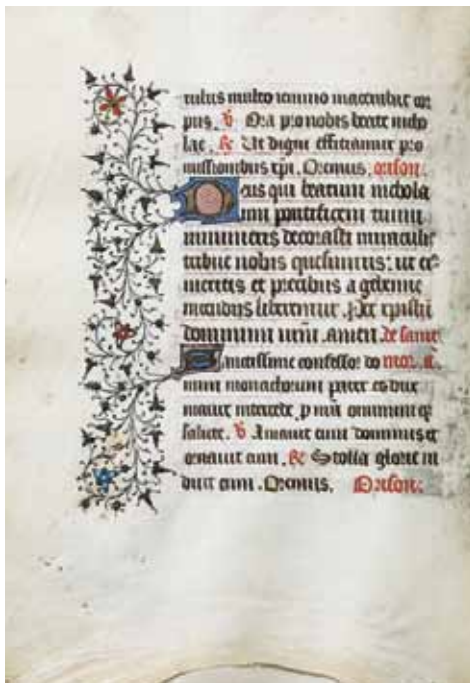 tulus multo ieiunio macerabat cor
pus. ℣ Ora pro nobis beate nicho
lae. ℟ Ut digni efficiamur pro
missionibus xpi. Oremus. orison.
Deus qui beatum nichola
um pontificem tuum
innumeris decorasti miraculis
tribue nobis quesumus: ut ei9
meritis et precibus a gehenne
incendiis liberemur. Per xpistū
dominum nrm. amen. De saint
Sanctissime confessor do mor. ā.
mini monachorum pater et dux
maure intercede p nrā omnium q3
salute. ℣ Amavit eum dominus et
ornavit eum. ℟ Stolla glorie in
duit eum. Oremus. Orison.